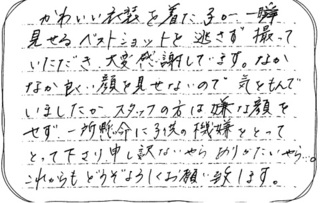 かわいい衣装を着た子の一瞬
見せるベストショットを逃さず撮って
いただき大変感謝しています。なか
なか良い顔を見せないので気をもんで
いましたがスタッフの方は嫌な顔を
せず一所懸命に子供の機嫌をとって
とって下さり申し訳ないやら ありがたいやら…。
これからもどうぞよろしくお願い致します。